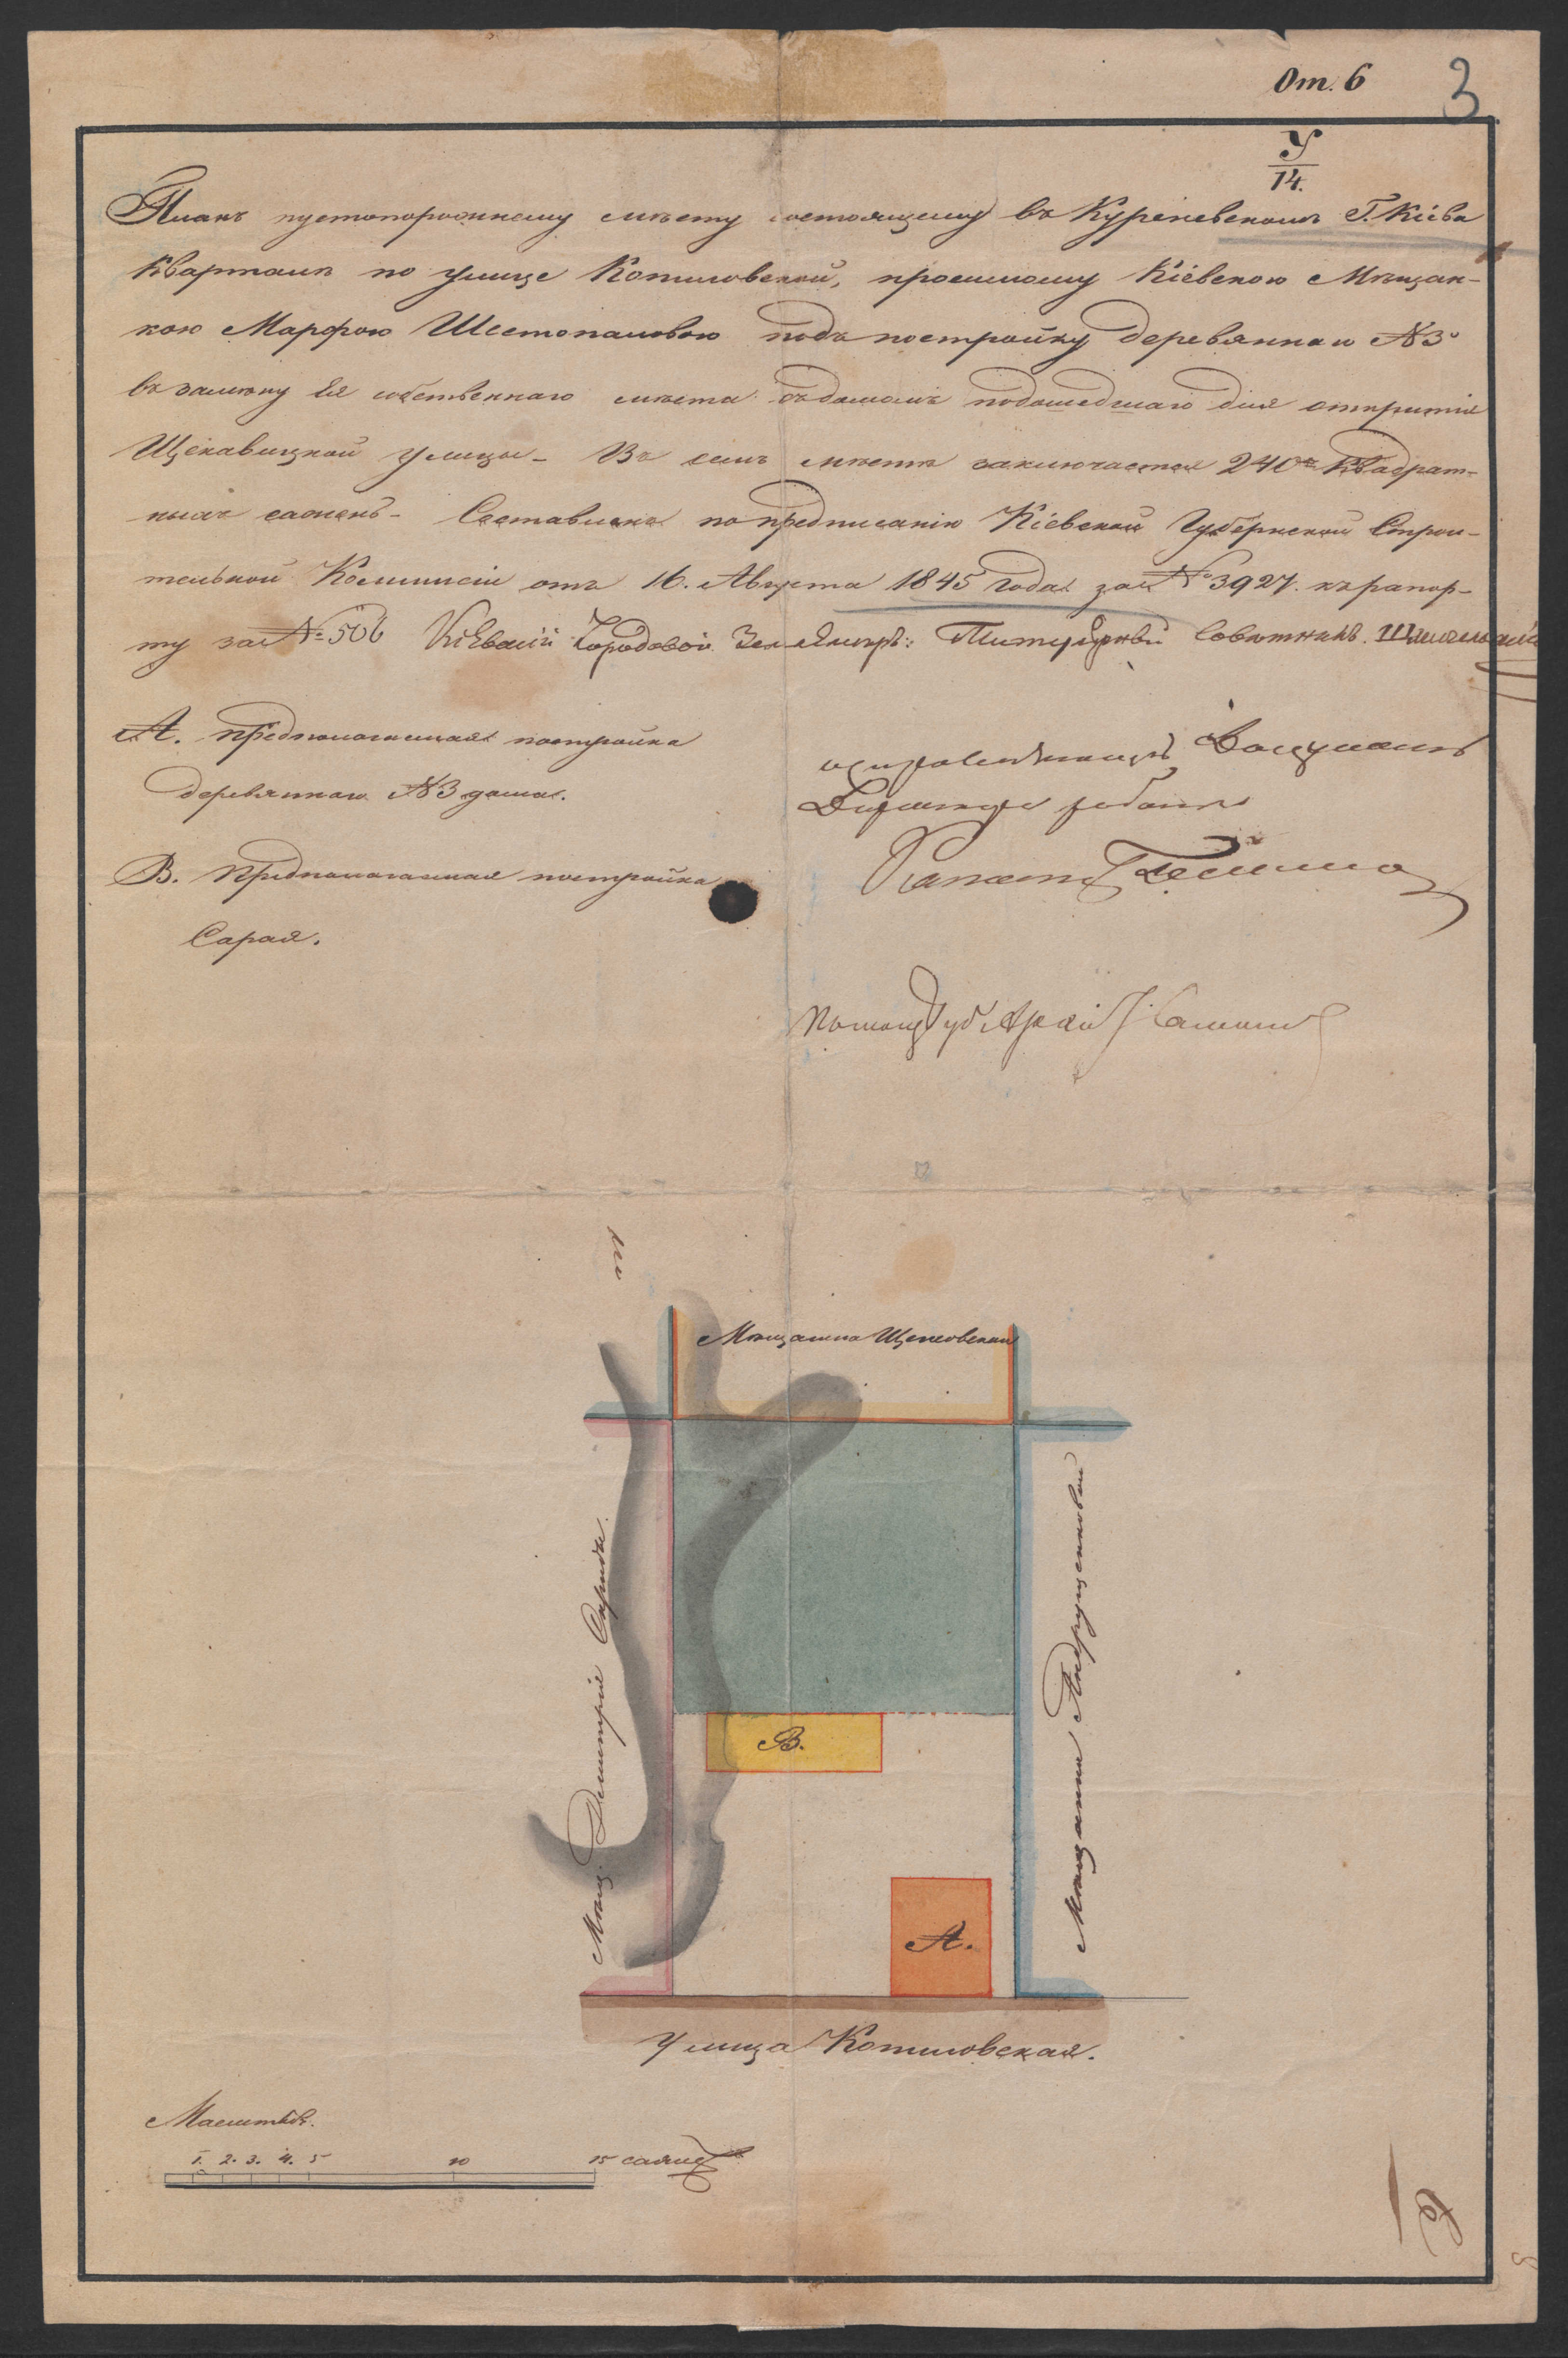 От. 6
3
У
14.
Планъ пустопорожнему мѣсту состоящему въ Куреневскомъ Г. Кіева
кварталѣ по улице Котиловской, просимому Кіевскою Мѣщан-
кою Марфою Шестопаловою подъ постройку деревяннаго №3º
въ замѣну Ея собственнаго мѣста съ домомъ подошедшаго для открытія
Щекавицкой улицы - Въ семъ мѣстѣ заключается 240 Квадрат-
ныхъ сажень - Составленъ по предписанію Кіевской Губернской Строи-
тельной Коммиссіи отъ 16. Августа 1845 года за № 3927. къ рапор-
ту за № 506 Кіевскій Городовой Землемѣръ: Титулярный Совѣтникъ.
А. предполагаемая постройка
деревяннаго №3 дома.
В. предполагаемая постройка
Сарая.
Капитанъ
Помощ Губ Архи
Мѣщанина Щепковскаго
Мѣщ. Дмитрія
Мѣщанки Андрущенковой
В.
А.
Улица Котиловская.
Масштабъ.
1. 2. 3. 4. 5 10 15 сажен